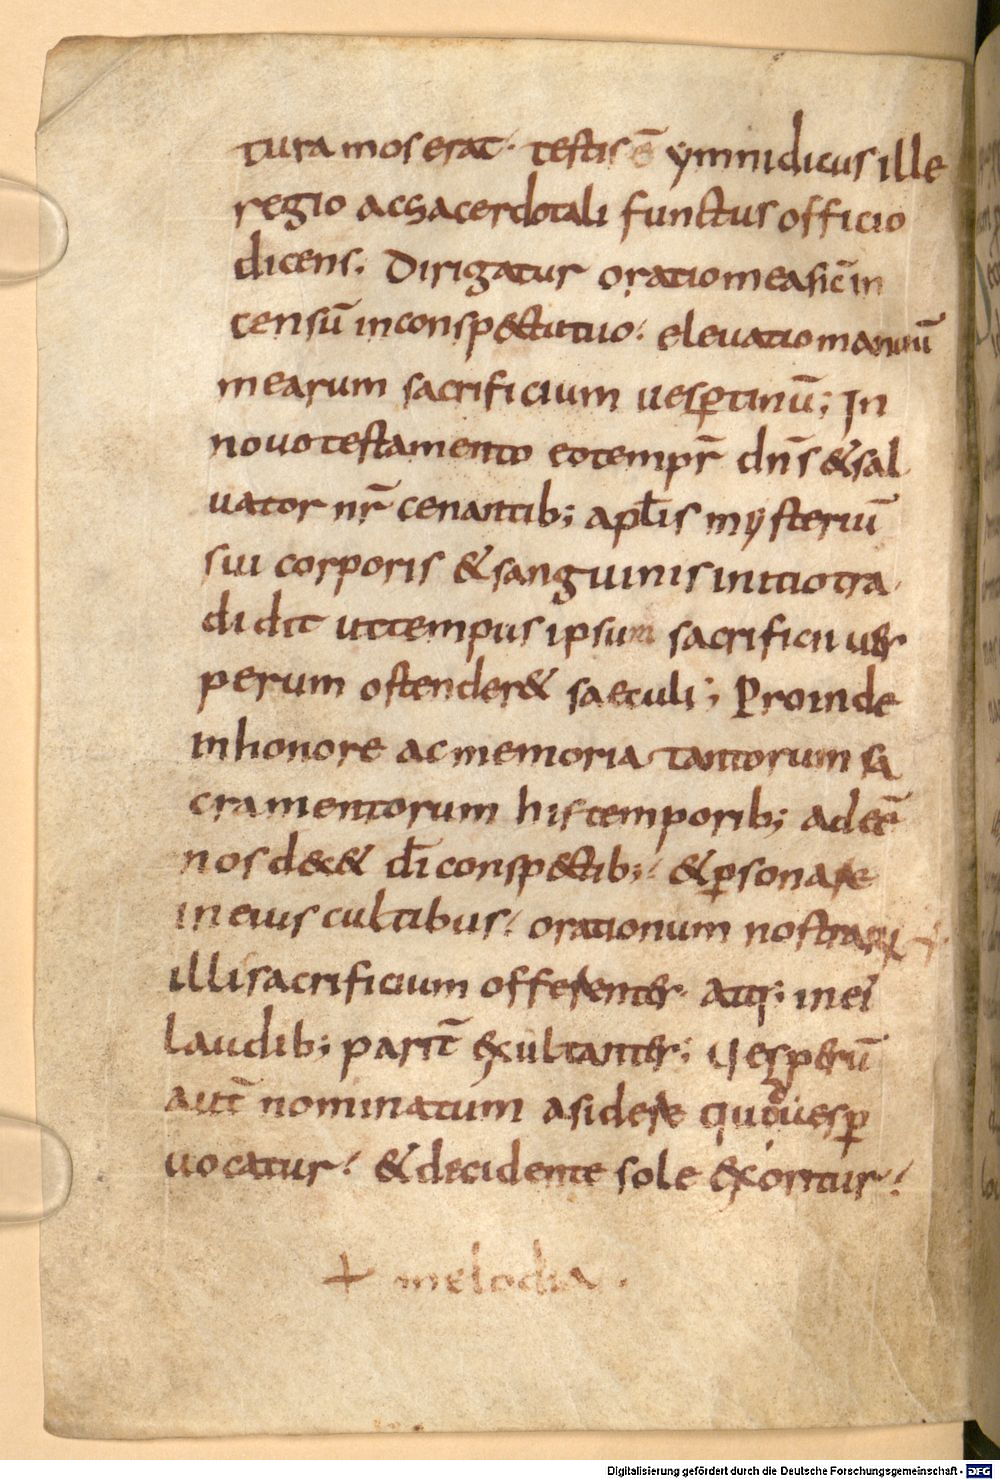 tura mos erat· testis ē ymnidicus ille
regio ac sacerdotali functus officio
dicens. Dirigatur oratio mea sic̄ in
censū in conspectu tuo. elevatio manuū
mearum sacrificium uesꝑtinū; In
novo testamento eo tempr̄ dn̄s & sal
uator nr̄ cenantib; apl̄is mysteriū
sui corporis & sanguinis initio tra
didit ut tempus ipsum sacrificii ues
perum ostender& saeculi; Proinde
in honore ac memoria tantorum sa
cramentorum his temporib; adeē
nos dec& dī conspectib; & ꝑsonare
in eius cultibus. orationum nostrarū +
illi sacrificium offerentes· atq; in ei
laudib; parit̄ exultantes; Uesperū
aut̄ nominatum a sidere qui uesꝑ
uocatur. & decidente sole exoritur.
+ melodia.
Digitalisierung gefördert durch die Deutsche Forschungsgemeinschaft - DFG